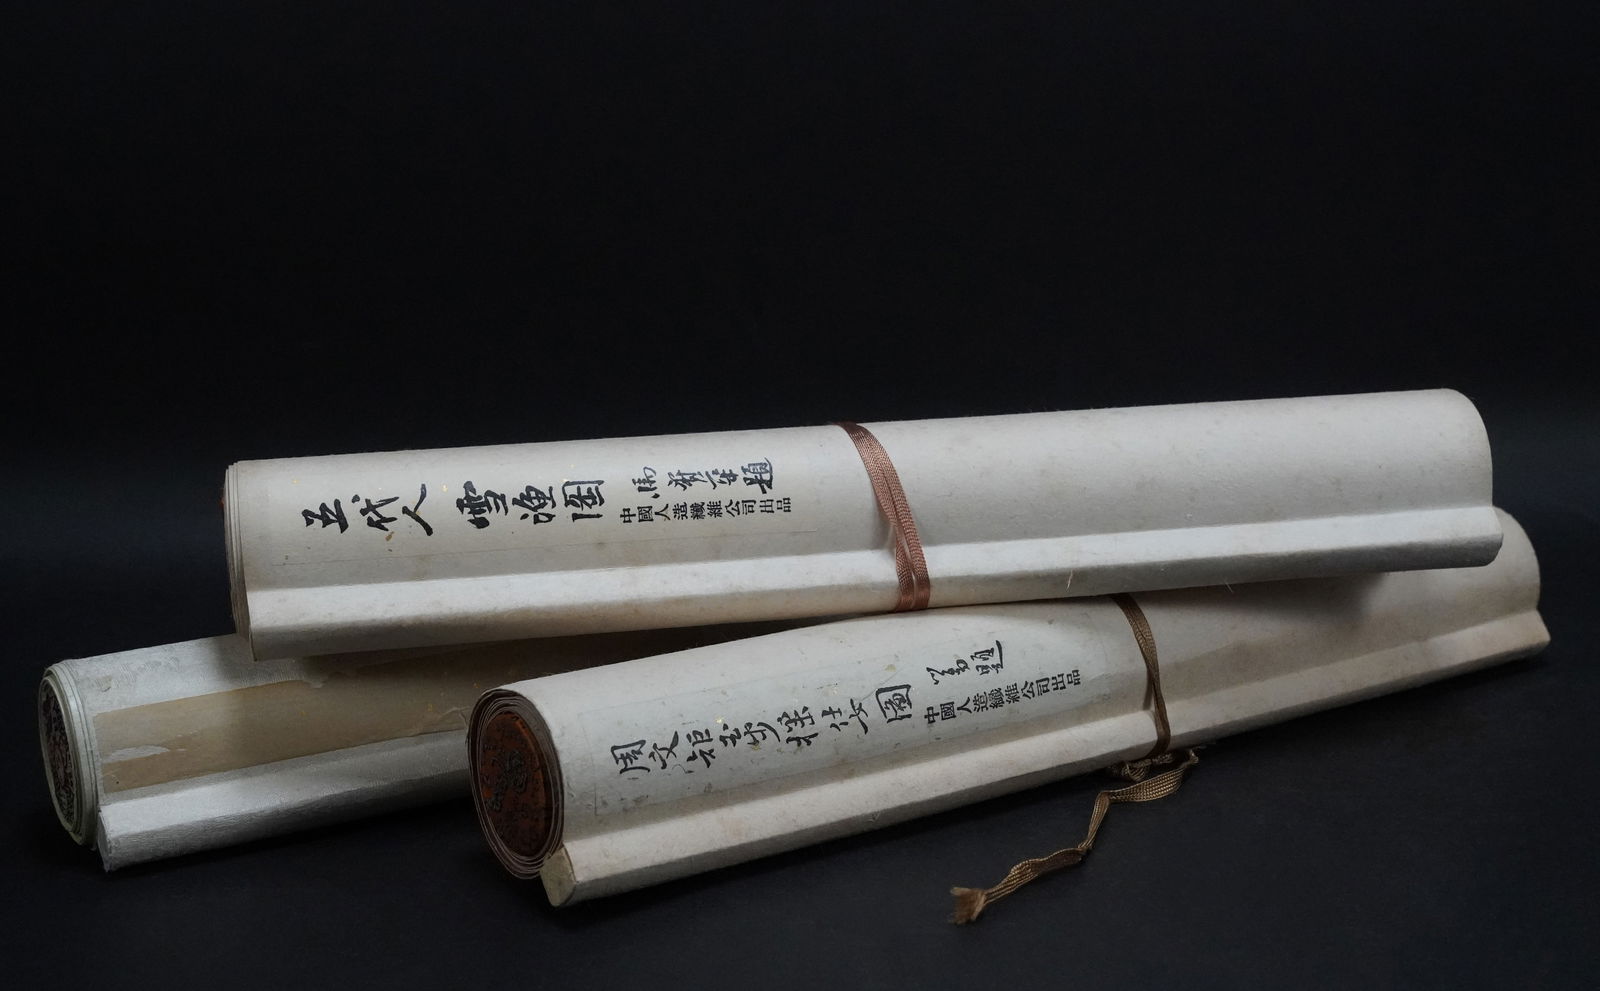 五代人 雪漁圖
馬壽華題
中國人造纖維公司出品
周文矩 步搖仕女圖
題
中國人造纖維公司出品